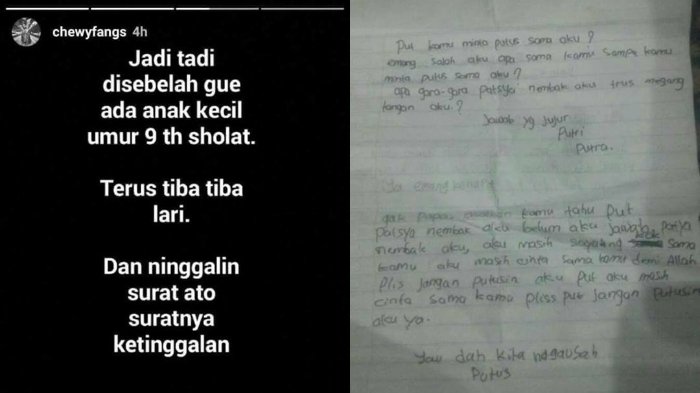 chewyfangs 4h
Jadi tadi
disebelah gue
ada anak kecil
umur 9 th sholat.
Terus tiba tiba
lari.
Dan ninggalin
surat ato
suratnya
ketinggalan
Put kamu minta putus sama aku?
emang salah aku apa sama kamu sampe kamu
minta putus sama aku?
apa gara-gara patsya nembak aku trus megang
tangan aku?
Jawab yg jujur
Putri
Putra.
Ya emang kenapa
gak papa kamu tahu Put
patsya nembak aku belum aku jawab
nembak aku, aku masih sayang sama
kamu aku masih cinta sama kamu demi Allah
plis jangan putusin aku put aku masih
cinta sama kamu pliss put jangan putusin
aku ya.
Yau dah kita nggausah
Putus